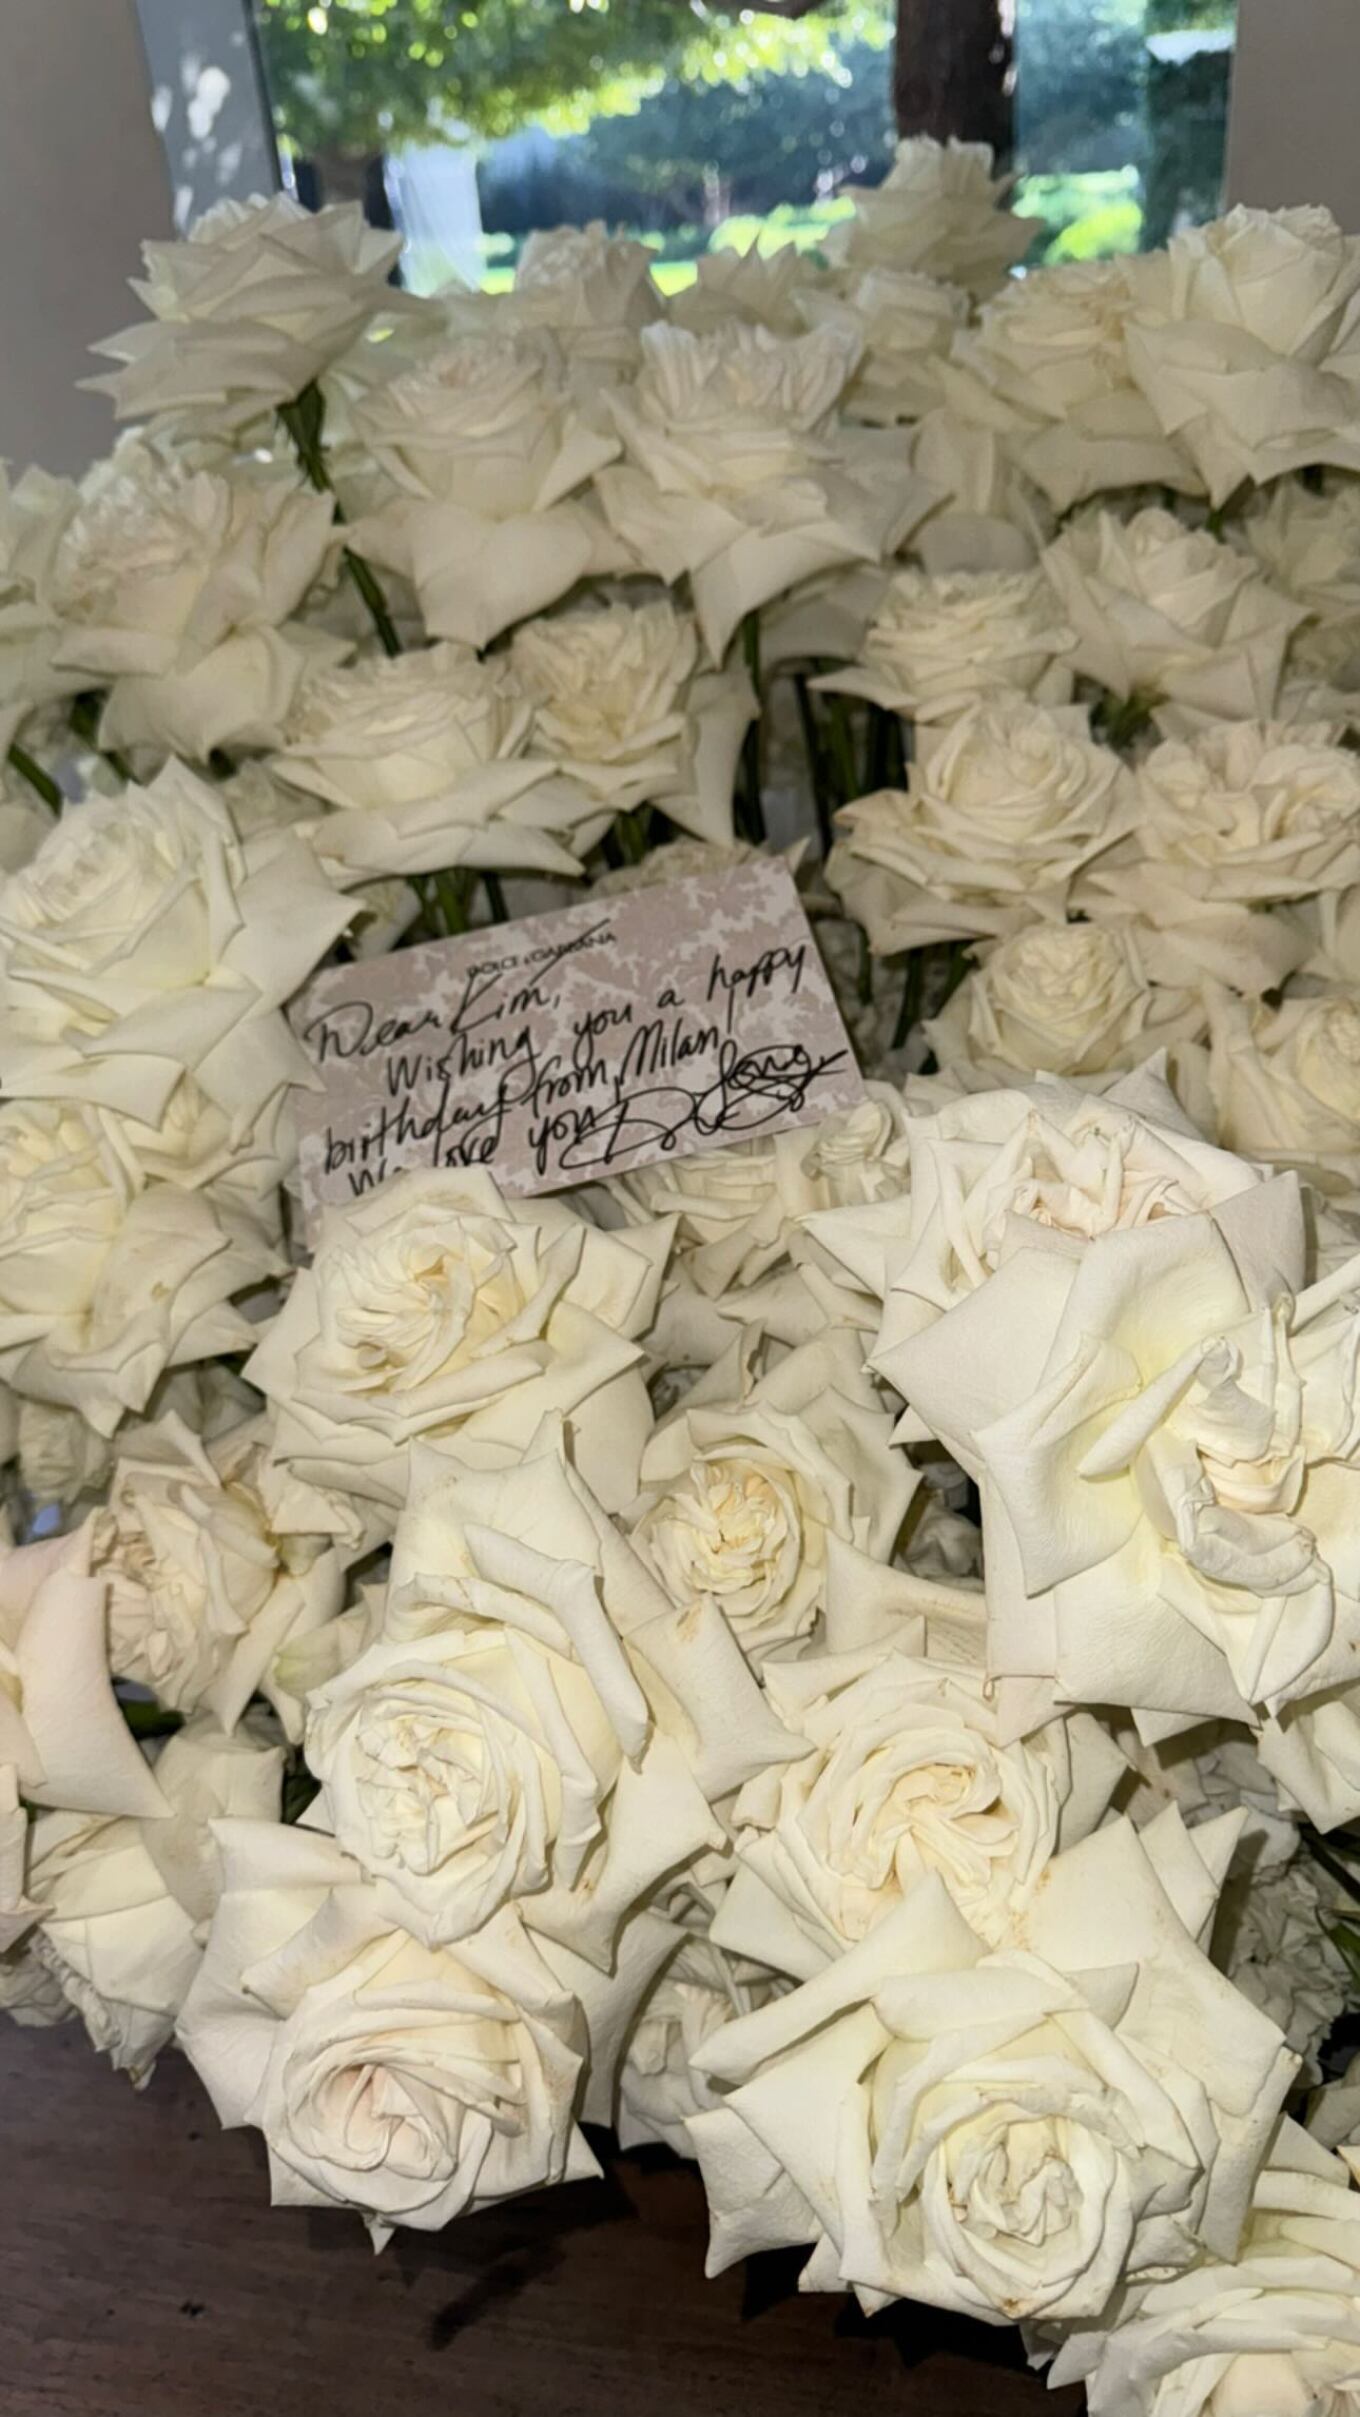 DOLCE & GABBANA
Dear Kim,
Wishing you a happy
birthday from Milan!
We love you